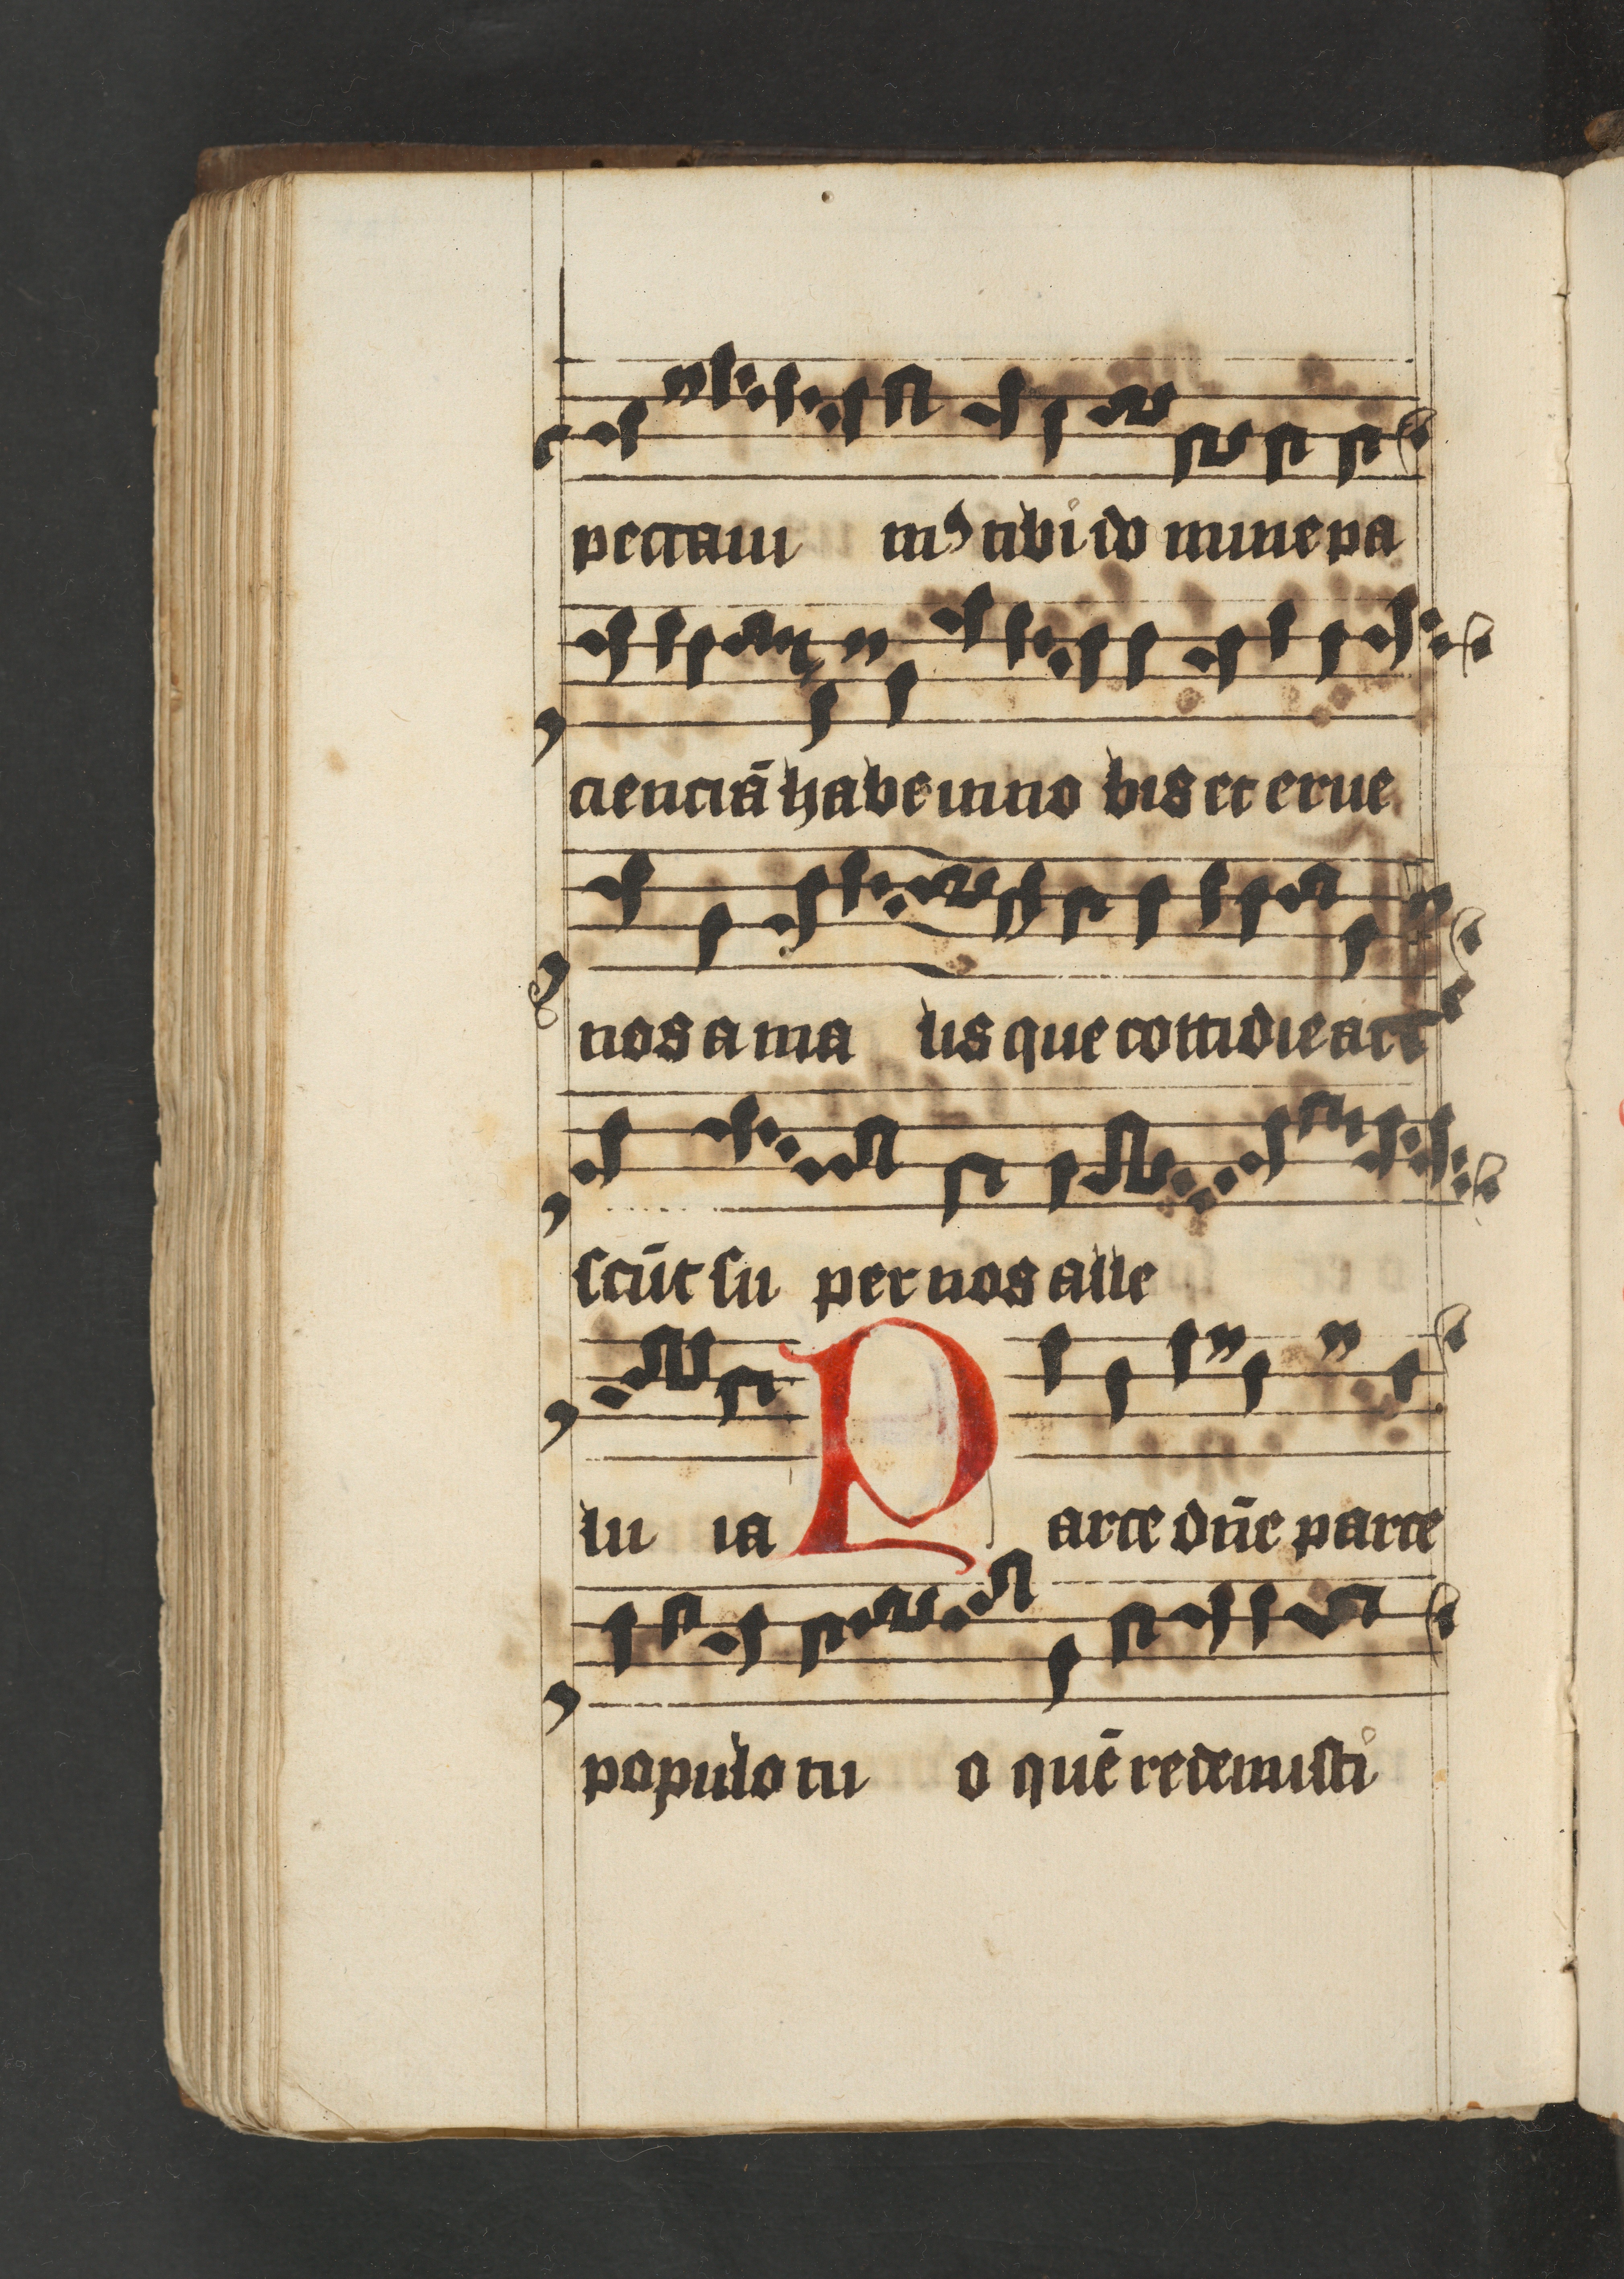 peccaui mꝰ tibi do mine pa
cienciā habe in no bis et erue
nos a ma lis que cottidie acre
scūt su per nos alle
lu ia Parce dn̄e parce
populo tu o quē redemisti